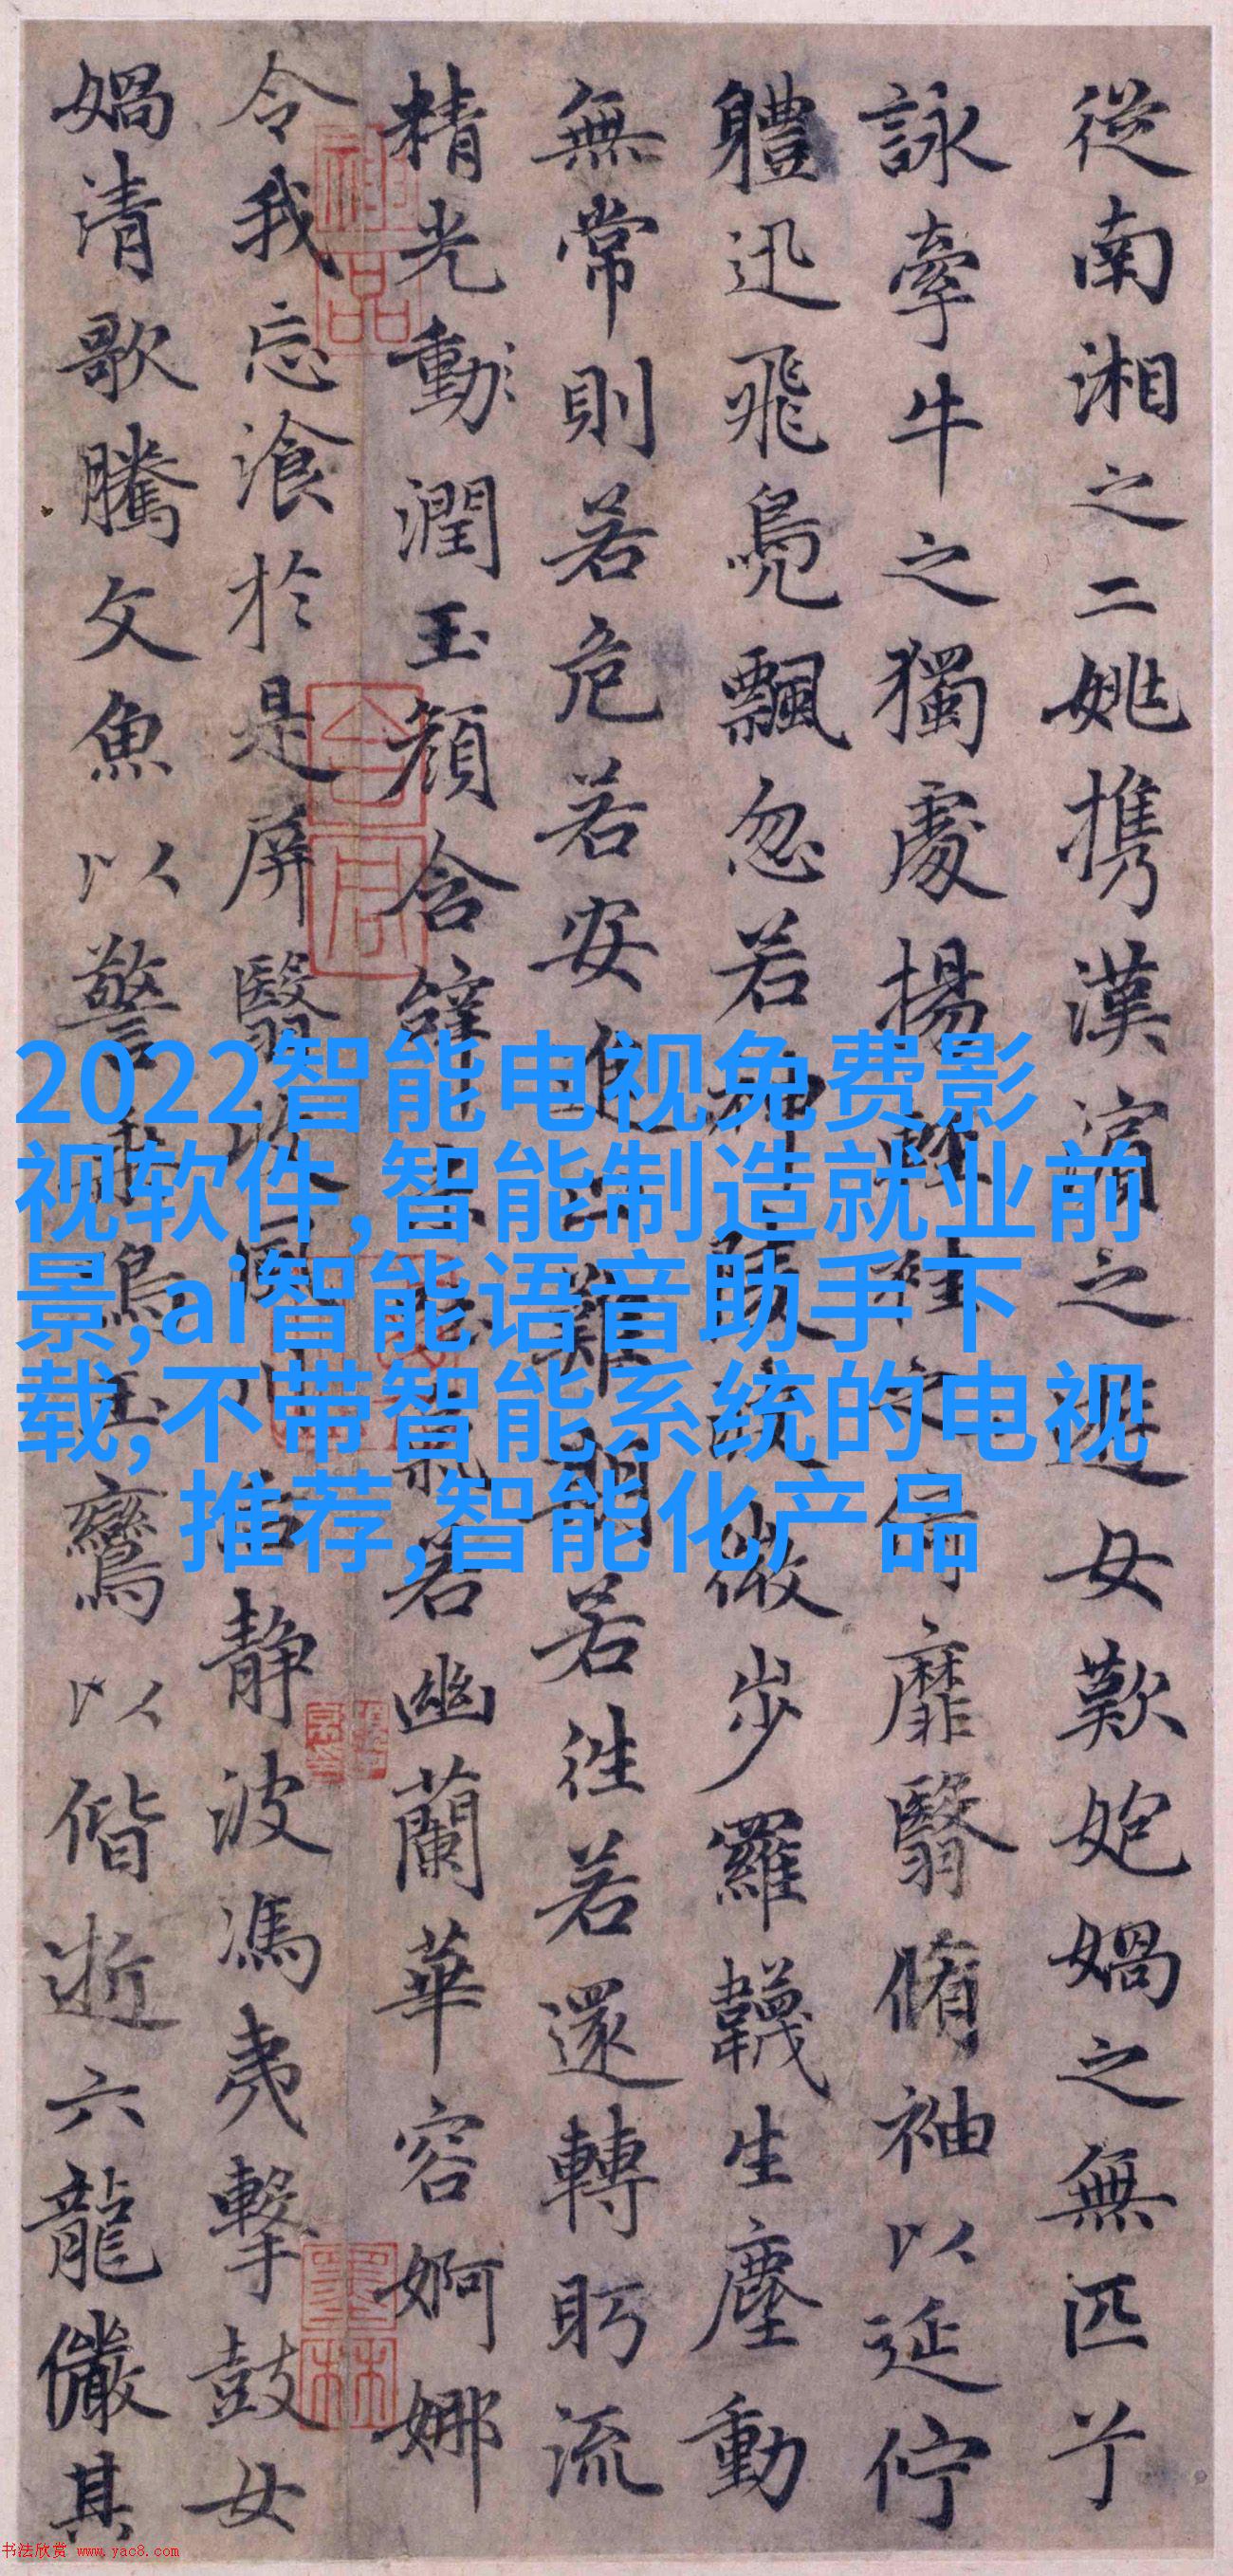 從南湘之二姚携漢濱之遊女歎匏媧之無匹兮
詠牽牛之獨處揚輕袿之猗靡翳脩袖以延佇
軆迅飛鳧飄忽若神陵波微步羅韈生塵動
無常則若危若安進止難期若往若還轉眄流
精光動潤玉顏含辭未吐氣若幽蘭華容婀娜
令我忘湌於是屏翳收風川后靜波馮夷擊鼓女
媧清歌騰文魚以警乘鳴玉鸞以偕逝六龍儼其
2022智能电视免费影
视软件,智能制造就业前
景,ai智能语音助手下
载,不带智能系统的电视
推荐,智能化产品
书法欣赏 www.yac8.com